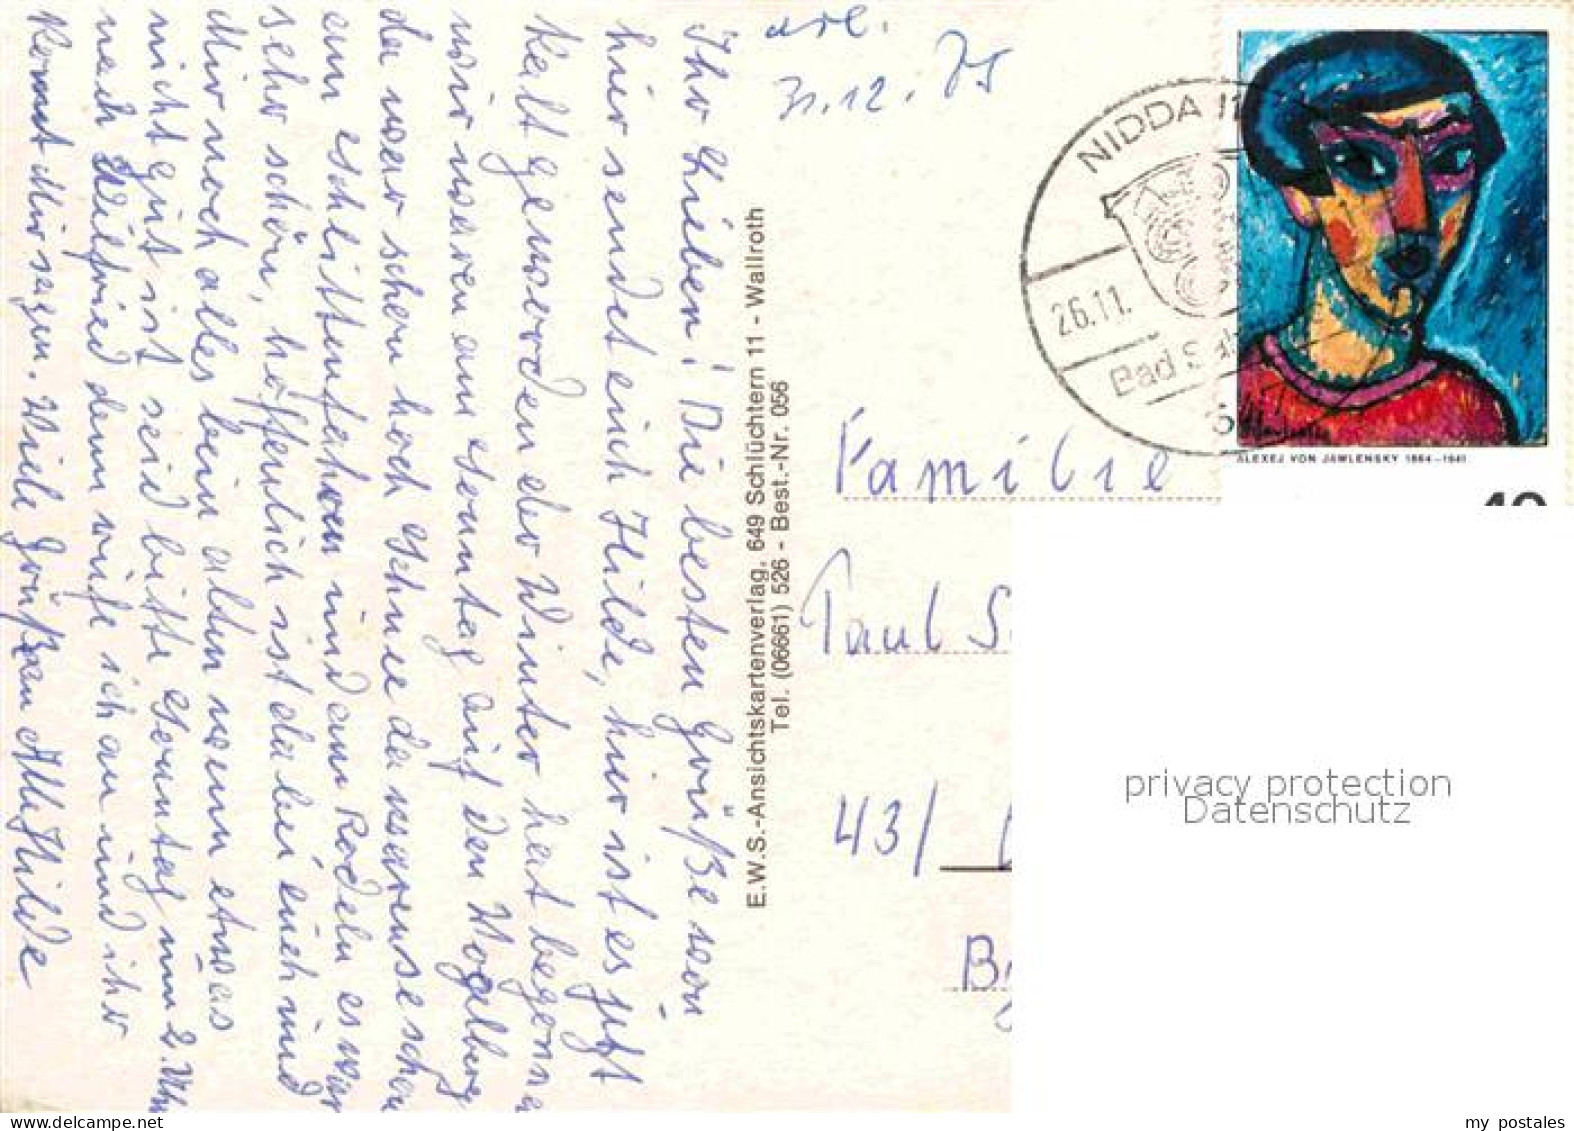 Ihr Lieben! Die besten Grüße von
hier sendet euch Hilde, hier ist es jetzt
kalt geworden der Winter hat begonnen
wir waren am Sonntag auf den Vogelberg
da war schon hoch Schnee da waren se schon
am schlittenfahren und am Rodeln es war
sehr schön, hoffenlich ist da bei euch und
Mir noch alles beim alten wenn etwas
nicht gut ist seid bitte Sonntag um 2. Uhr
nach Wilfried dann rufe ich an und ihr
kommt Mir sagen. Viele Grüßen Alle Hilde
E.W.S.-Ansichtskartenverlag, 649 Schlüchtern 11 - Wallroth
Tel. (06661) 526 - Best.-Nr. 056
erl.
31.12.75
NIDDA 11
26.11.
Bad S
ALEXEJ VON JAWLENSKY 1864–1941
40
Familie
Paul S
43/
B
privacy protection
Datenschutz
my postales